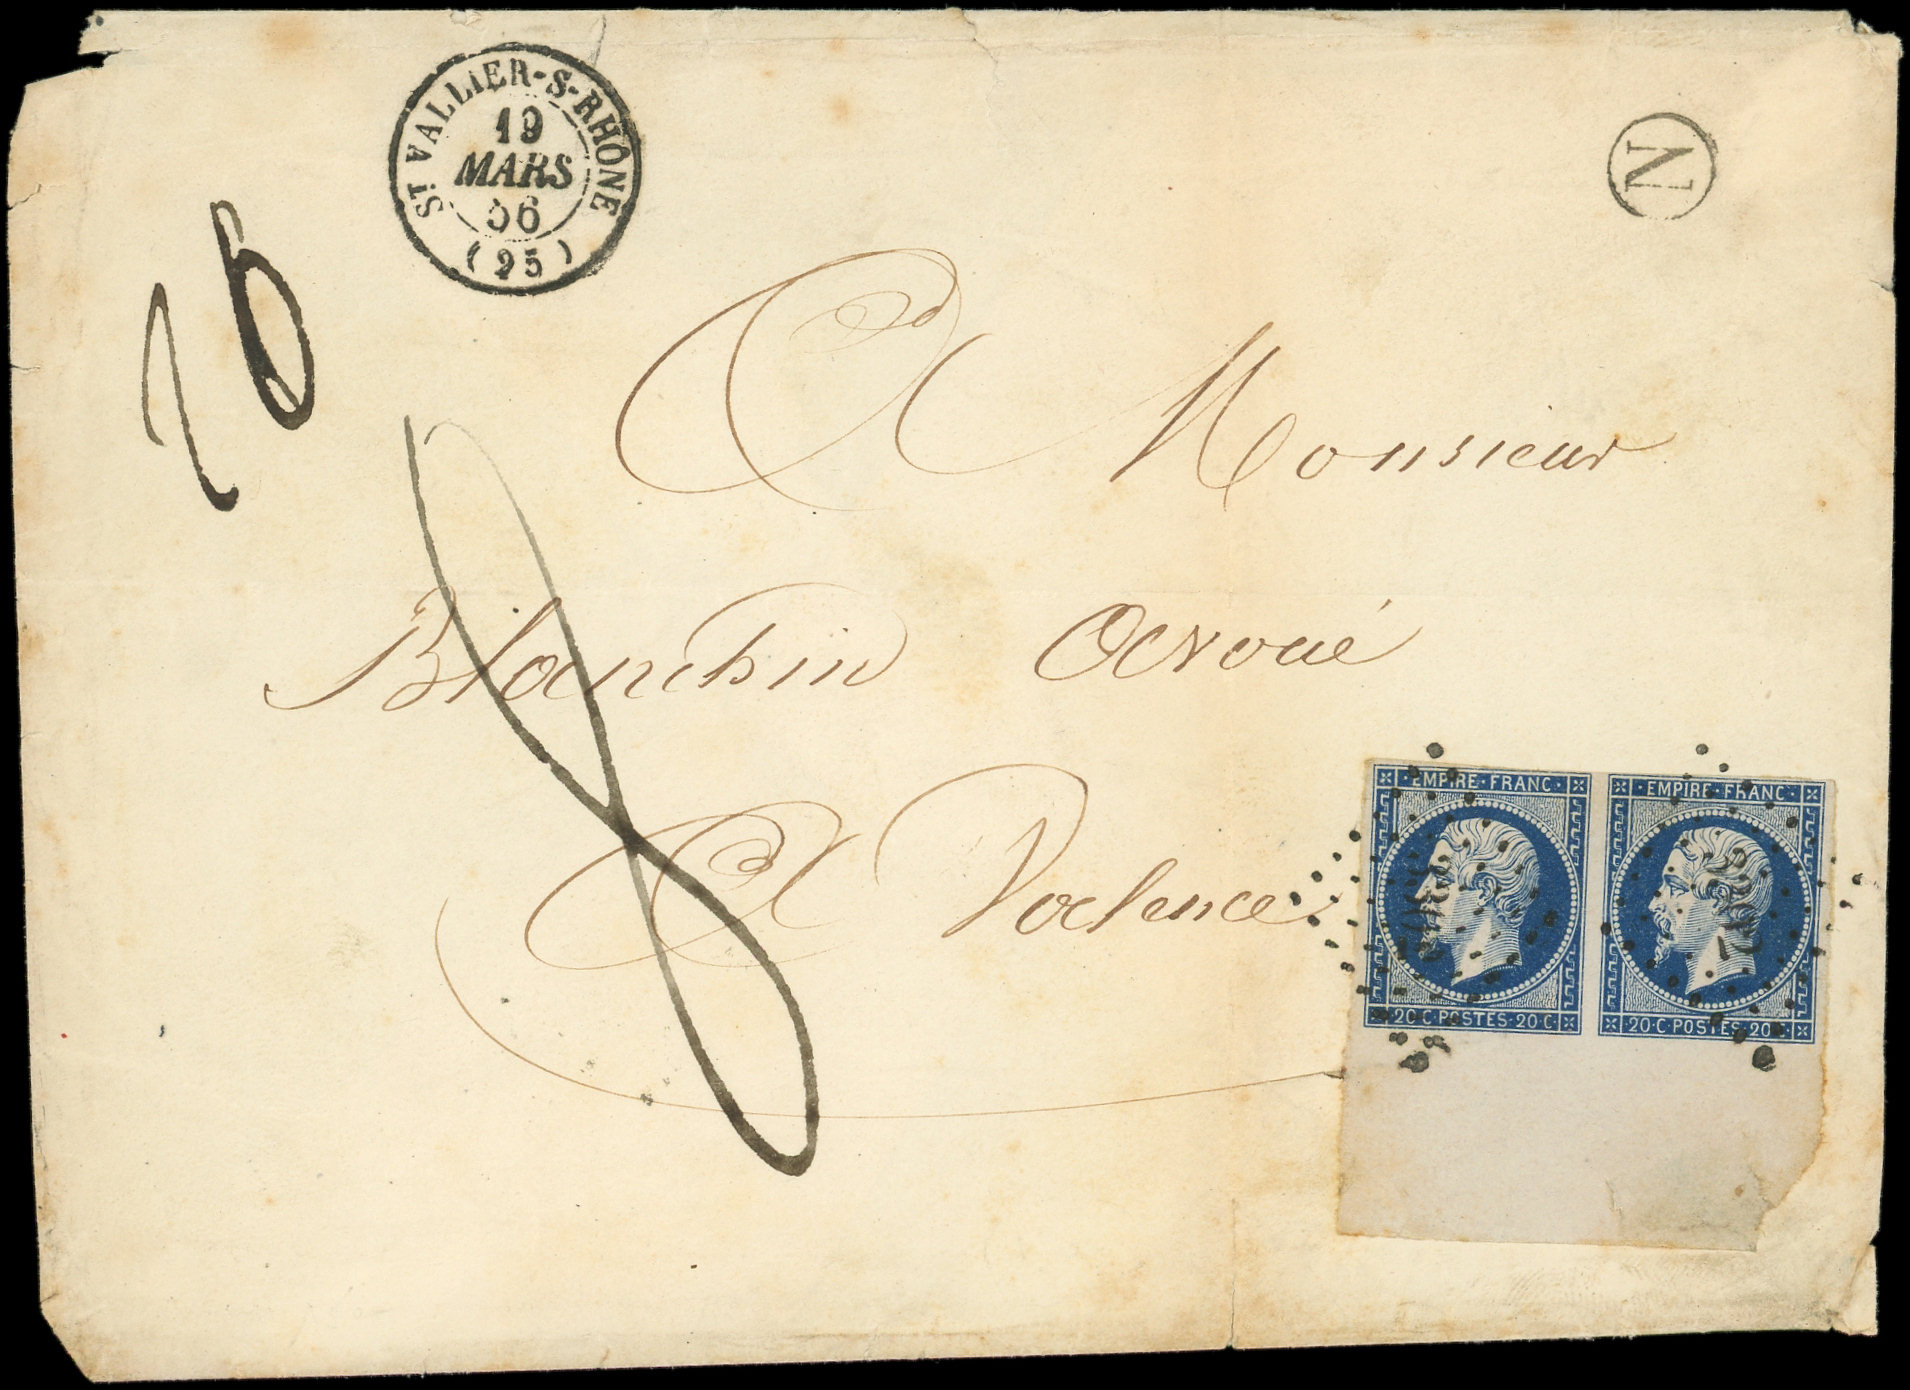 ST VALLIER-S-RHÔNE
19
MARS
56
(25)
N
A Monsieur
Blanchin Avoué
A Valence
8
EMPIRE·FRANC· EMPIRE·FRANC·
20·C·POSTES·20·C· 20·C·POSTES·20·C